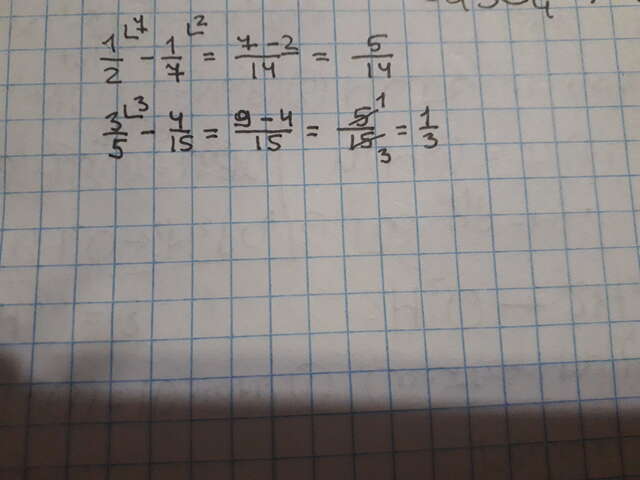 1/2⌊7 - 1/7⌊2 = 7-2/14 = 5/14
3/5⌊3 - 4/15 = 9-4/15 = 5 1/15 3 = 1/3